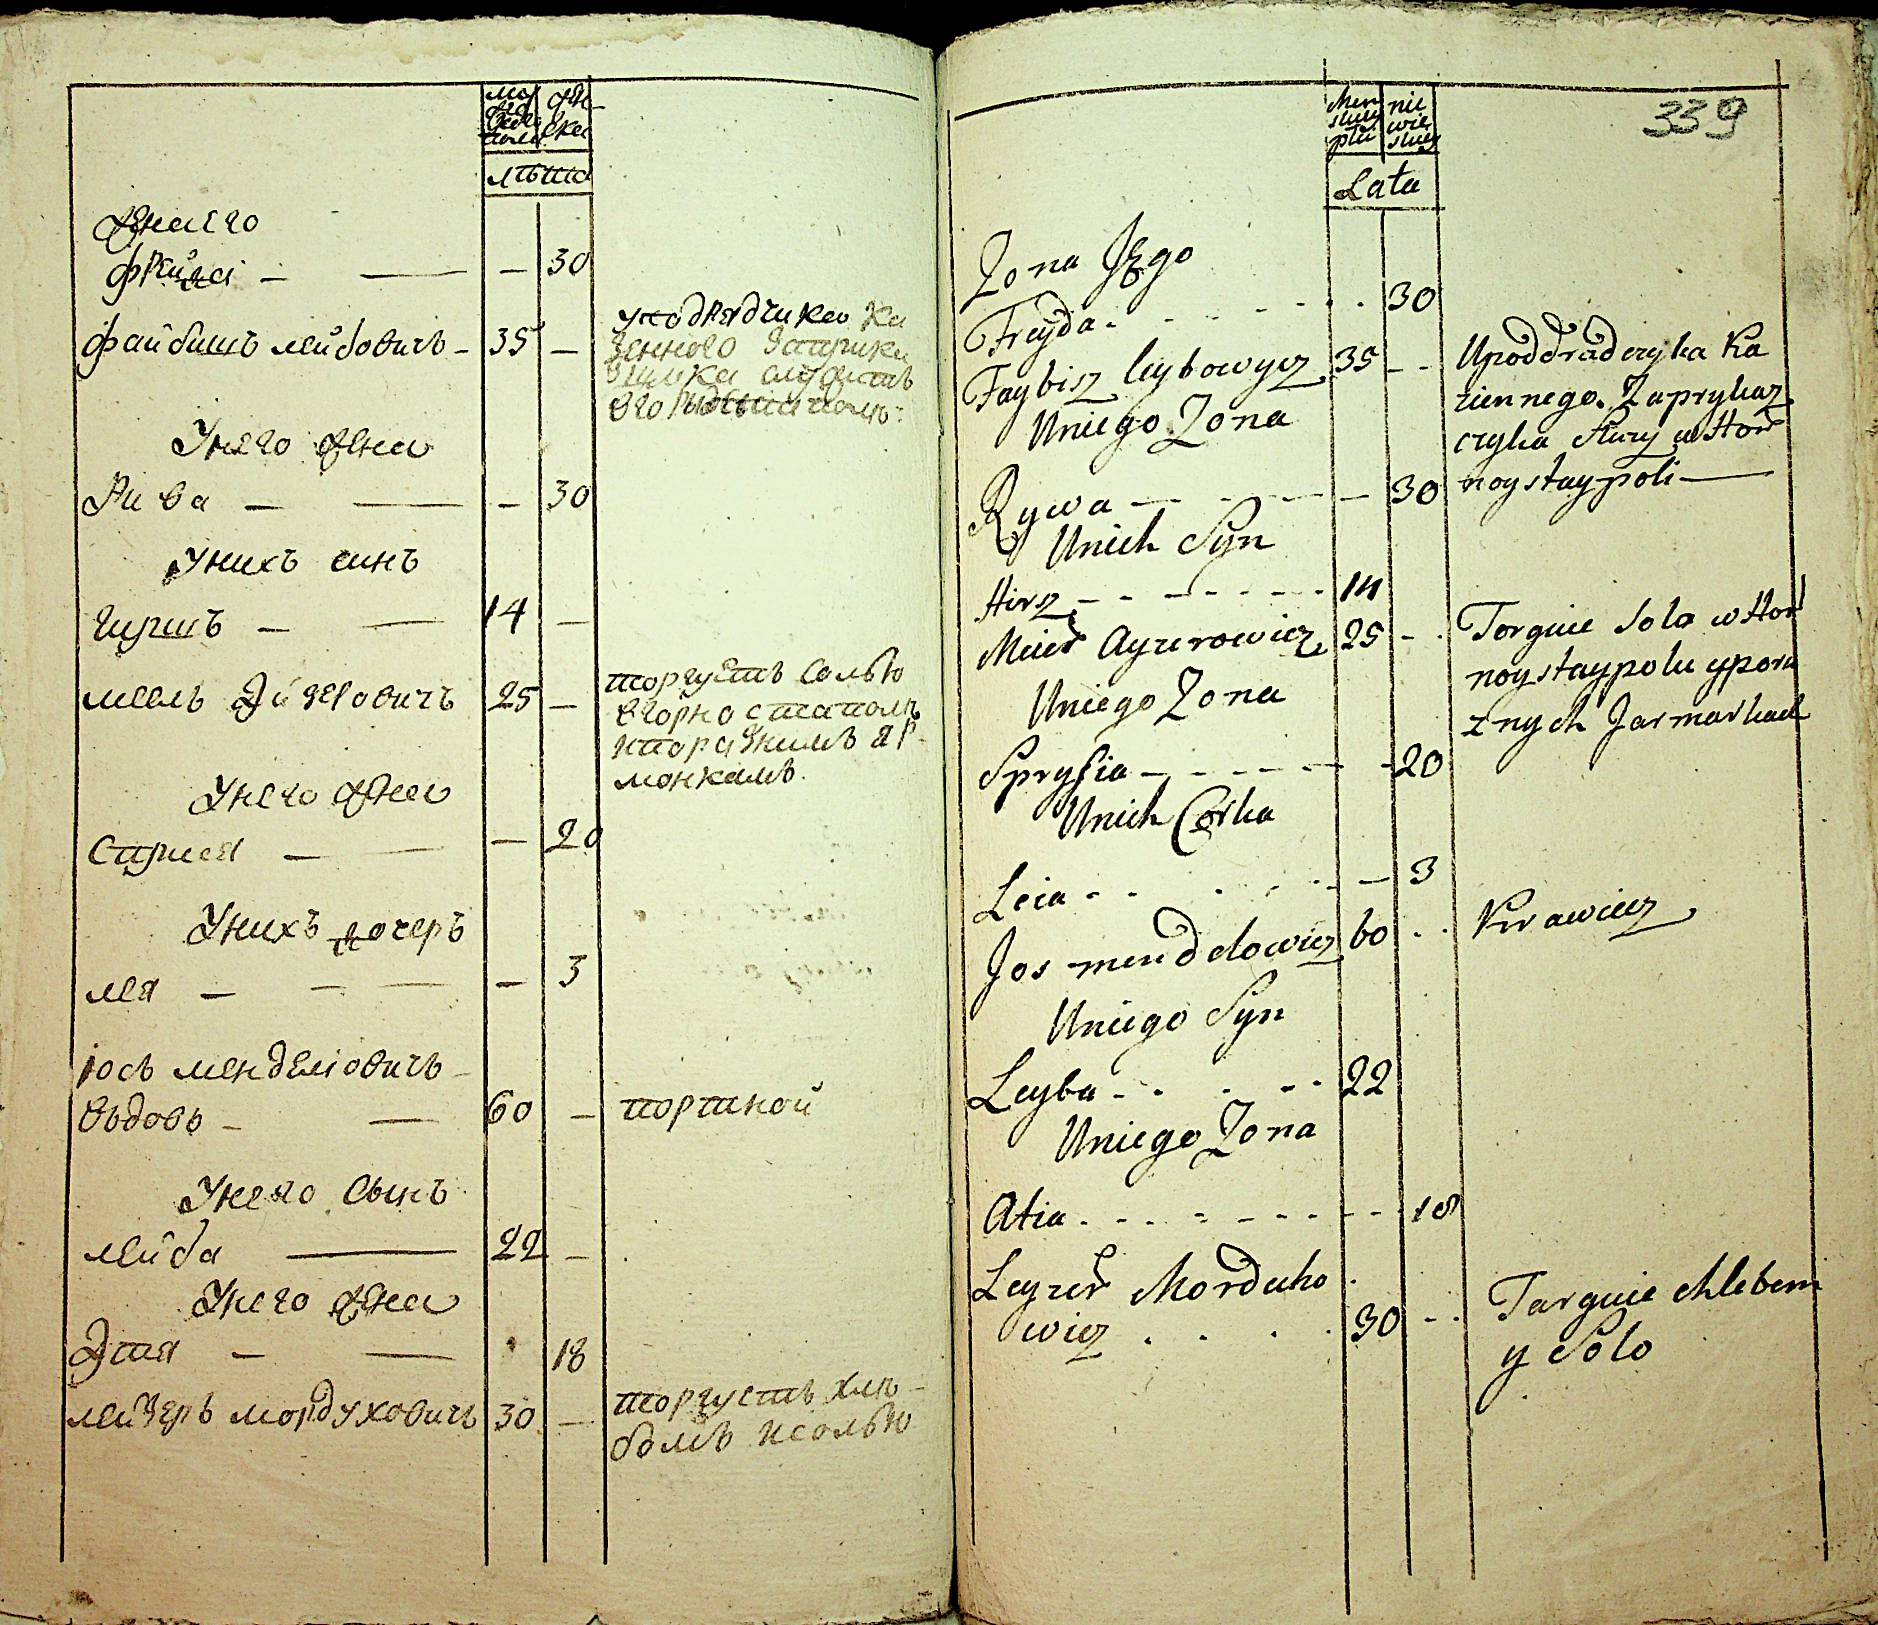 жена его
фрейда — — — 30
файбишъ лейбовичъ — 35 —
у подрядчика ка
зенного
служитъ
У него жена
Рива — — — 30
У нихъ синъ
гиршъ — — 14 —
меель Эйзеровичъ 25 —
торгуетъ солью
в горностаполѣ
и поразнимъ яр-
монкамъ.
У него жена
Сприся — — — 20
У нихъ дочеръ
лея — — — — 3
іось менделіовичъ —
вдовъ — — 60 — портной
У него сынъ
лейба — 22 —
У него жена
Этя — — 18
лейзеръ мордуховичъ 30 —
торгуетъ хлѣ-
бомъ и солью
339
Lata
Zona Jego
Freyda 30
Faybisz leybowycz 35
Upoddradczyka Ka
ziennego Zaprykaz
czyka Służy w Hor
noystaypoli
Uniego Zona
Rywa 30
Unich Syn
Hirsz 14
Meier Ayzerowicz 25
Torguie Sola w Hor
noystaypolu y pora
znych Jarmarkach
Uniego Zona
Sprysia 20
Unich Corka
Leia 3
Jos mendelowicz 60
Krawiecz
Uniego Syn
Leyba 22
Uniego Zona
Atia 18
Leyzer Morducho
wicz 30
Targuie chlebem
y Solo